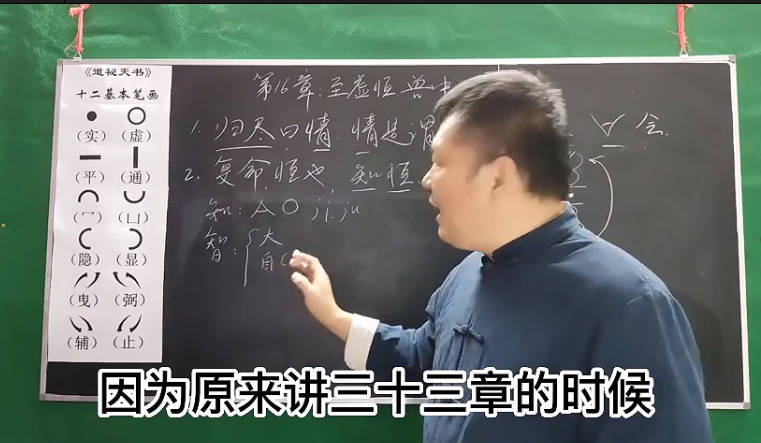 《道祕天书》
十二基本笔画
(实) (虚)
(平) (通)
(冖) (凵)
(隐) (显)
(曳) (弼)
(辅) (止)
第16章:至虚恒
1. 归尽曰情. 情是谓
2. 复命恒也. 知恒.
知: 人〇
智: 大
自
因为原来讲三十三章的时候